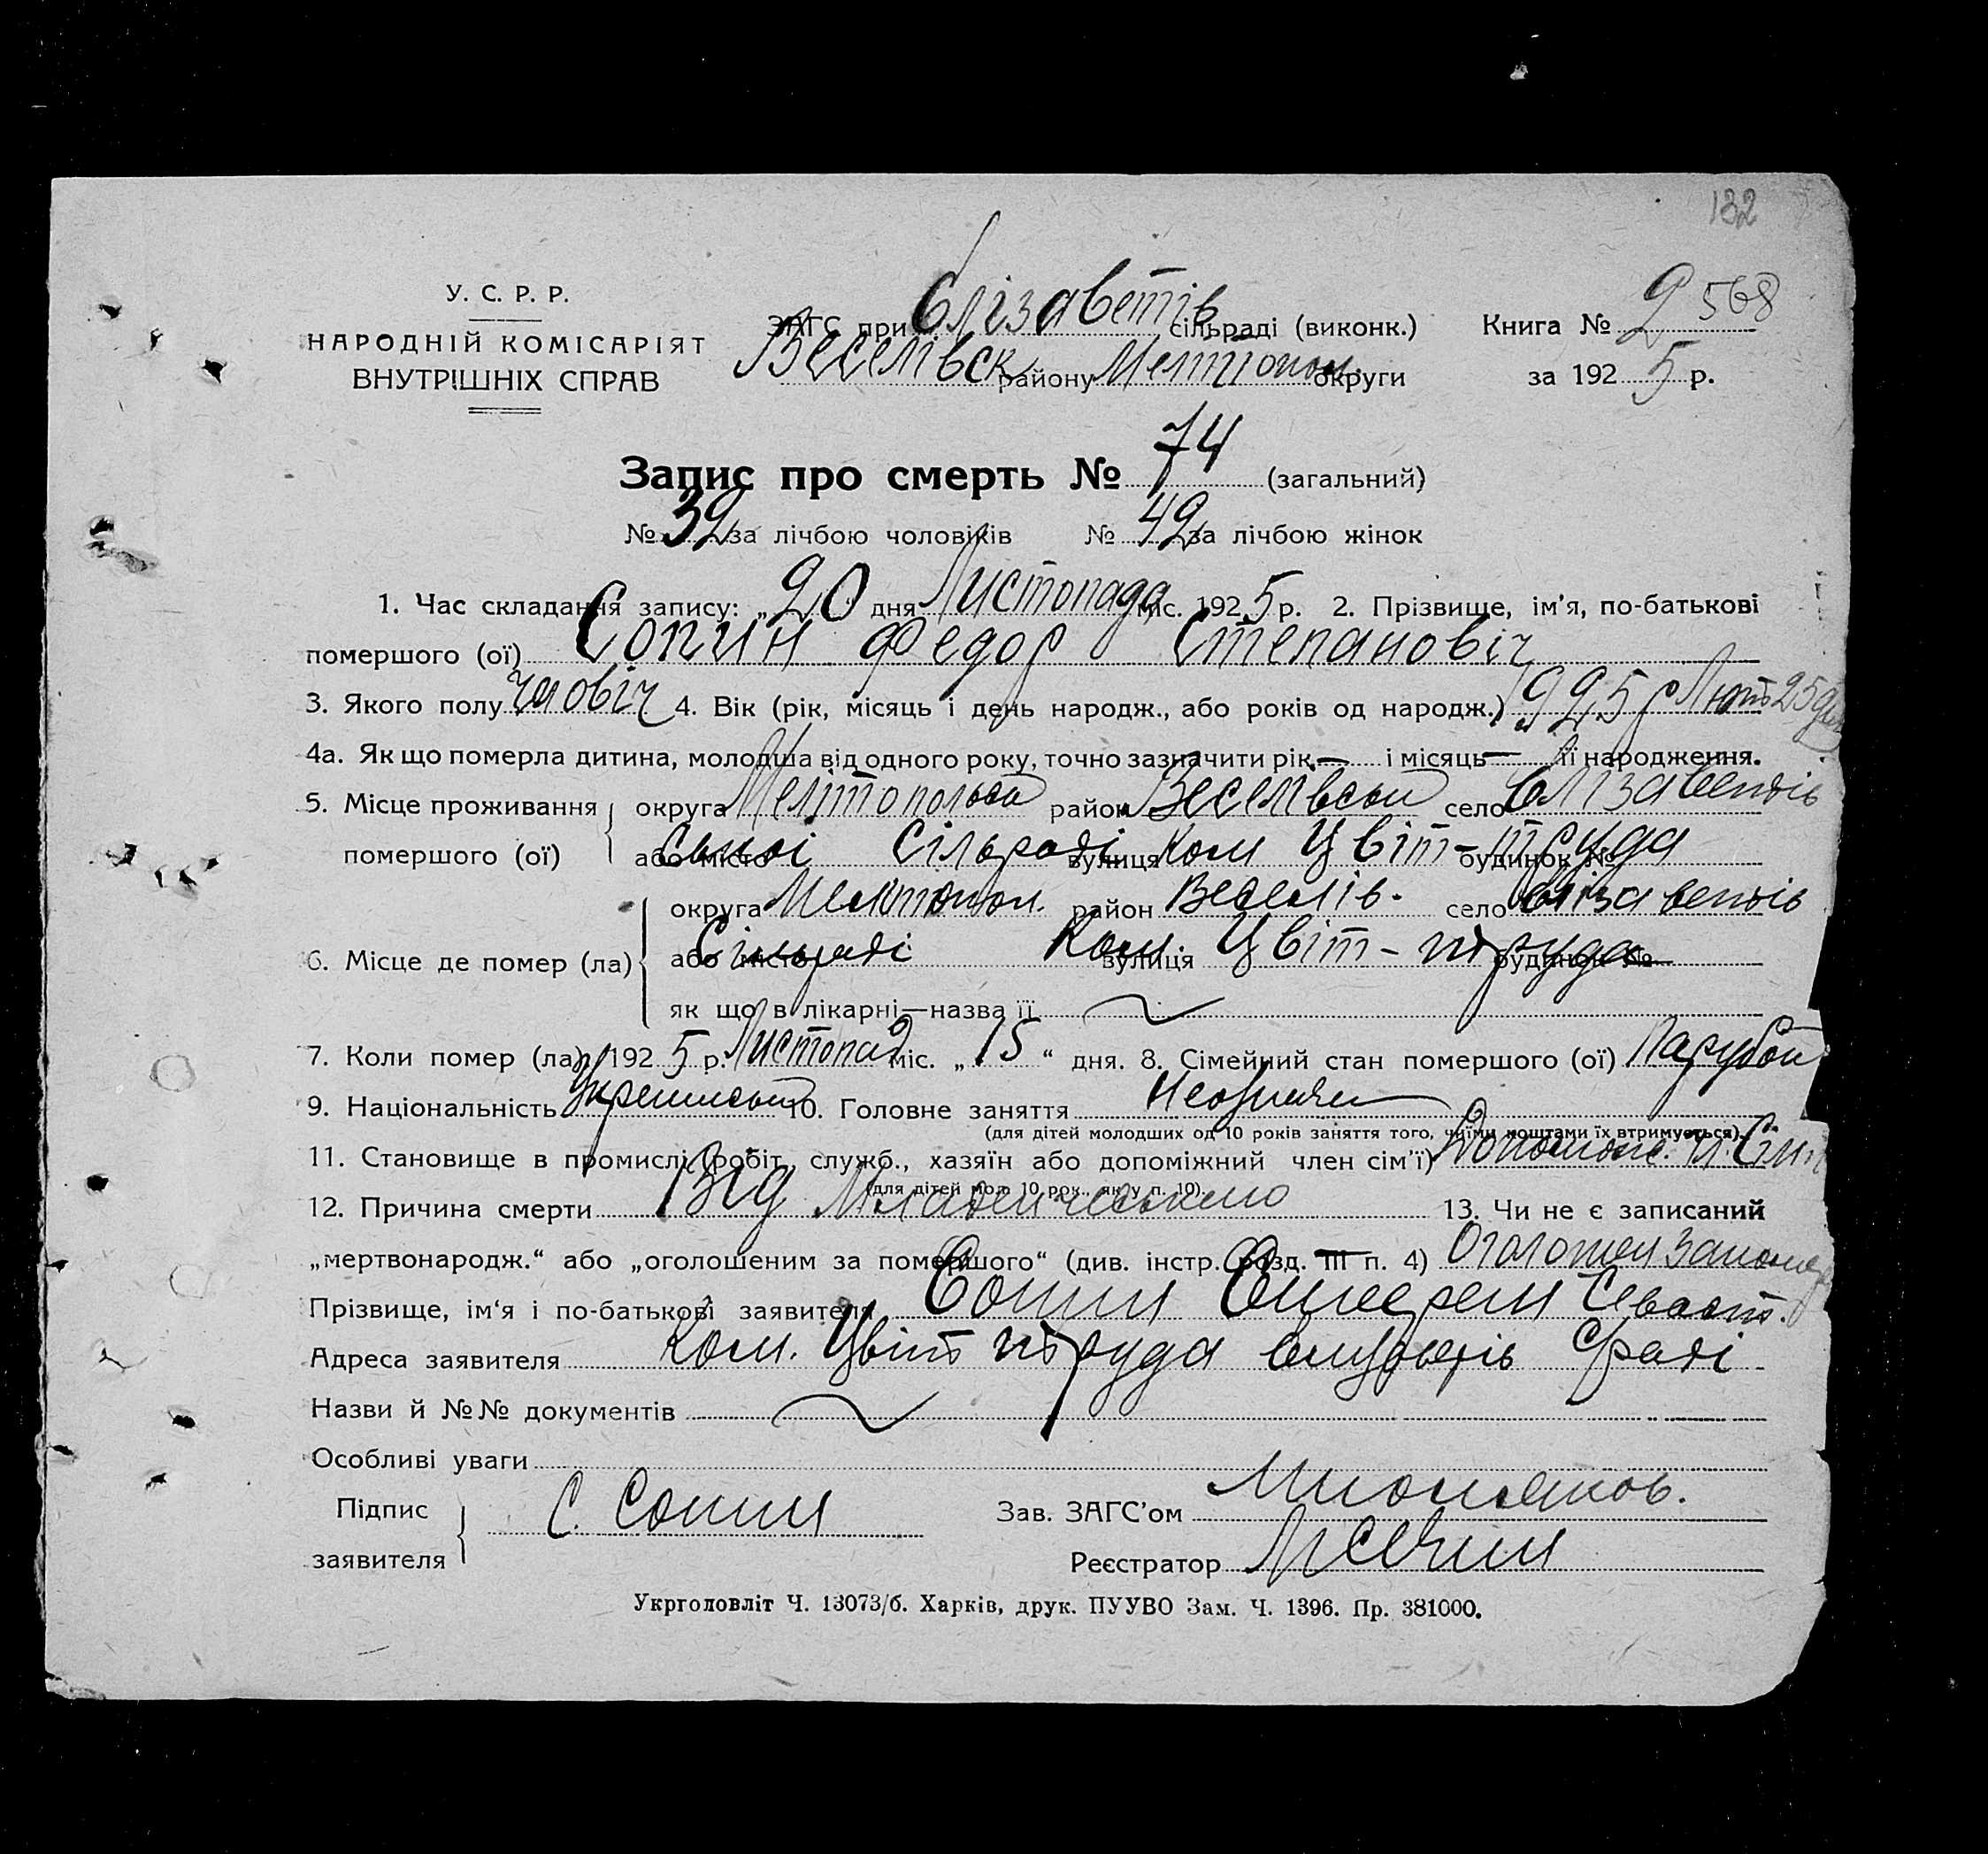 132
У. С. Р. Р.
НАРОДНІЙ КОМІСАРІЯТ
ВНУТРІШНІХ СПРАВ
ЗАГС при Єлізаветів сільраді (виконк.)
Веселівск району Мелітопол. округи
Книга № 2 568
за 1925 р.
Запис про смерть № 74 (загальний)
№ 32 за лічбою чоловіків № 42 за лічбою жінок
1. Час складання запису: „20 дня Листопада міс. 1925 р. 2. Прізвище, ім'я, по-батькові
помершого (ої) Сопин Федор Степановіч
3. Якого полу 4. Вік (рік, місяць і день народж., або років од народж.) 925 р Лют 25 дня
4а. Як що померла дитина, молодша від одного року, точно зазначити рік — і місяць — її народження.
5. Місце проживання помершого (ої) округа Мелітопольськ район Веселівськ село Єлізаветів
або місто Сільраді вулиця Ком Цвіт-труда будинок №
6. Місце де помер (ла) округа Мелітопол. район Веселів. село Єлізаветів
або місто Сільраді вулиця Ком. Цвіт-труда будинок №
як що в лікарні—назва її
7. Коли помер (ла) 1925 р. Листопад міс. „15“ дня. 8. Сімейний стан помершого (ої) Парубок
9. Національність 10. Головне заняття
(для дітей молодших од 10 років заняття того, чиїми коштами їх втримується).
11. Становище в промислі (робіт, служб., хазяїн або допоміжний член сім'ї)
(для дітей мол. 10 рок., як у п. 10).
12. Причина смерти Від Младенческого 13. Чи не є записаний
„мертвонародж.“ або „оголошеним за помершого“ (див. інстр. розд. III п. 4)
Прізвище, ім'я і по-батькові заявителя Сопин
Адреса заявителя Ком. Цвіт труда
Назви й №№ документів
Особливі уваги
Підпис заявителя С. Сопин Зав. ЗАГС'ом
Реєстратор
Укрголовліт Ч. 13073/б. Харків, друк. ПУУВО Зам. Ч. 1396. Пр. 381000.